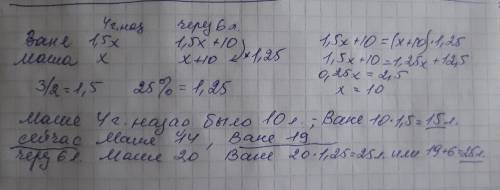 4 г. наз через 6 л.
Ване 1,5x 1,5x+10 ) 1,25 1,5x+10=(x+10)·1,25
Маша x x+10 1,5x+10=1,25x+12,5
0,25x=2,5
3/2=1,5 25%=1,25 x=10
Маше 4 г. назад было 10 л.; Ване 10·1,5=15 л.
сейчас Маше 14, Ване 19
через 6 л. Маше 20 Ване 20·1,25=25 л. или 19+6=25 л.